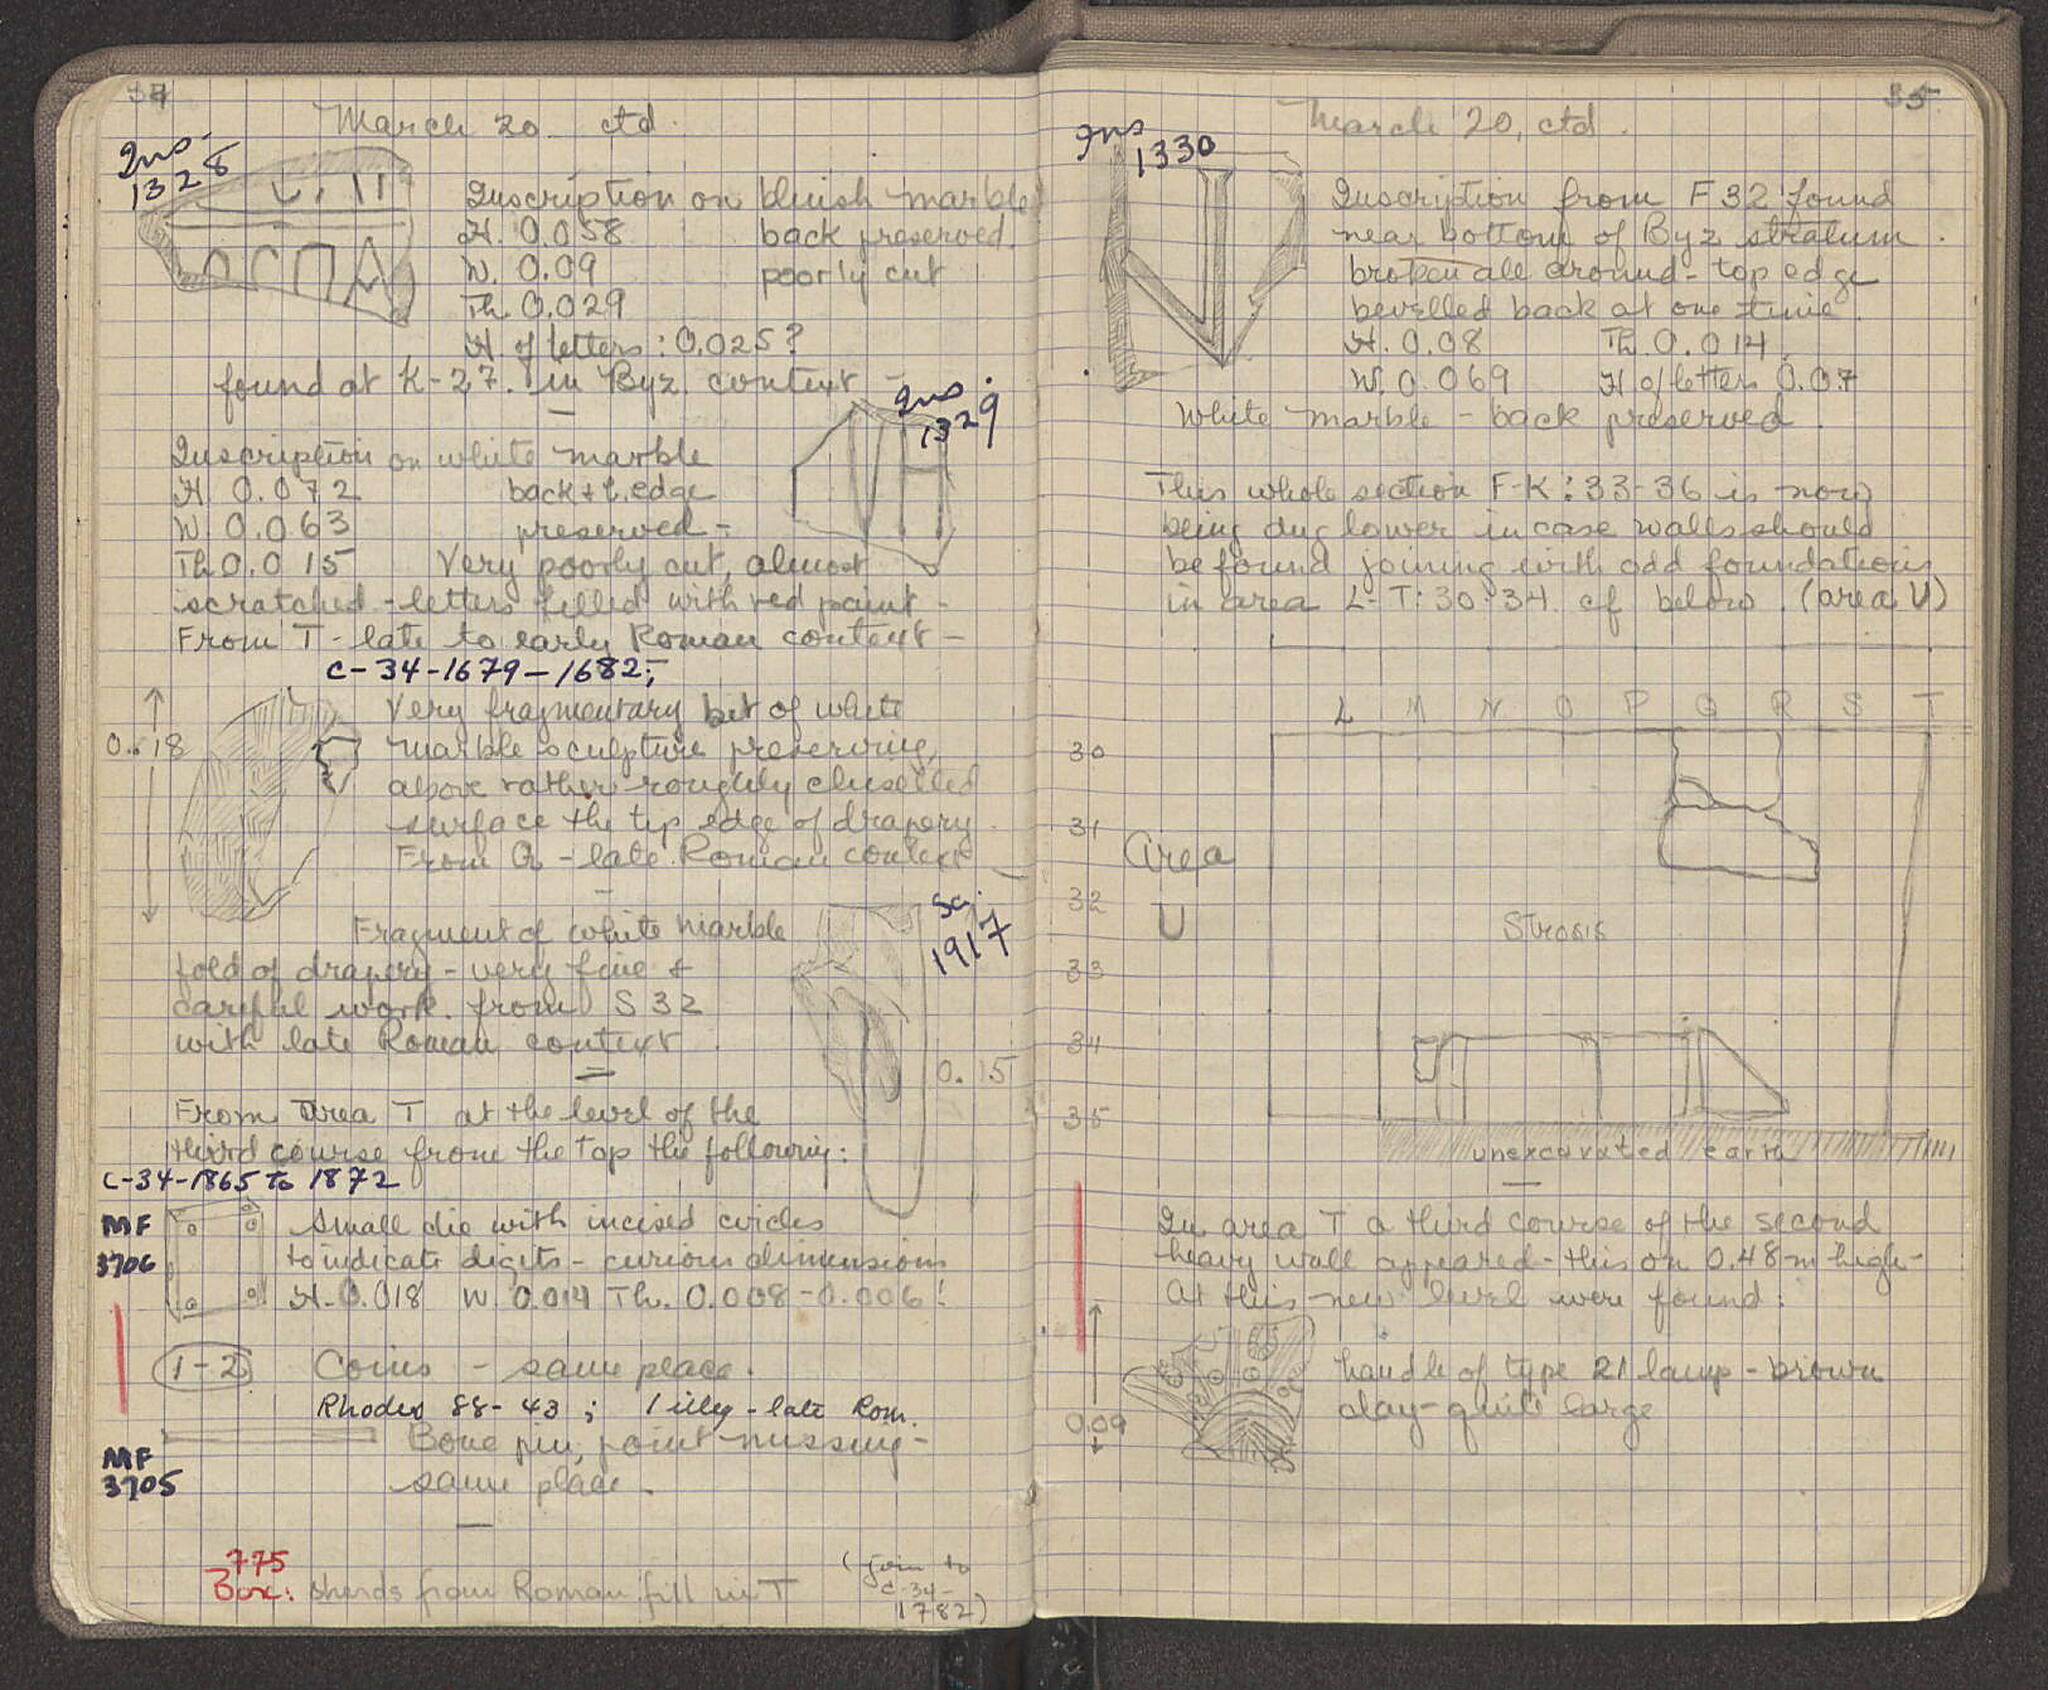 34
March 20 ctd.
Ins.
1328
Inscription on bluish marble
H. 0.058 back preserved.
W. 0.09 poorly cut
Th. 0.029
H of letters: 0.025?
found at K-27. in Byz. context -
Ins.
1329
Inscription on white marble
H. 0.072 back + l. edge
W. 0.063 preserved -
Th 0.015 Very poorly cut, almost
scratched - letters filled with red paint -
From T - late to early Roman context -
C-34-1679-1682;
0.18
Very fragmentary bit of white
marble sculpture preserving,
above rather roughly chiselled
surface the tip edge of drapery.
From Q - late Roman context
Sc.
1917
Fragment of white marble
fold of drapery - very fine +
careful work. from S 32
with late Roman context.
0.15
From area T at the level of the
third course from the top the following:
C-34-1865 to 1872
MF
3706
Small die with incised circles
to indicate digits - curious dimensions
H. 0.018 W. 0.014 Th. 0.008-0.006!
1-2 Coins - same place.
Rhodes 88-43; 1 illeg - late Rom.
MF
3705
Bone pin, point missing -
same place.
775
Box: sherds from Roman fill in T
(join to
C-34-
1782)
35
March 20, ctd.
Ins
1330
N
Inscription from F 32 found
near bottom of Byz stratum.
broken all around - top edge
bevelled back at one time.
H. 0.08 Th. 0.014.
W. 0.069 H of letters 0.07
White marble - back preserved.
This whole section F-K: 33-36 is now
being dug lower in case walls should
be found joining with odd foundations
in area L-T: 30-34. cf below. (area U)
L M N O P Q R S T
30
31
Area
32
U
Strosis
33
34
35
unexcavated earth
In area T a third course of the second
heavy wall appeared - this on 0.48 m high -
At this new level were found:
0.09
handle of type 21 lamp - brown
clay - quite large